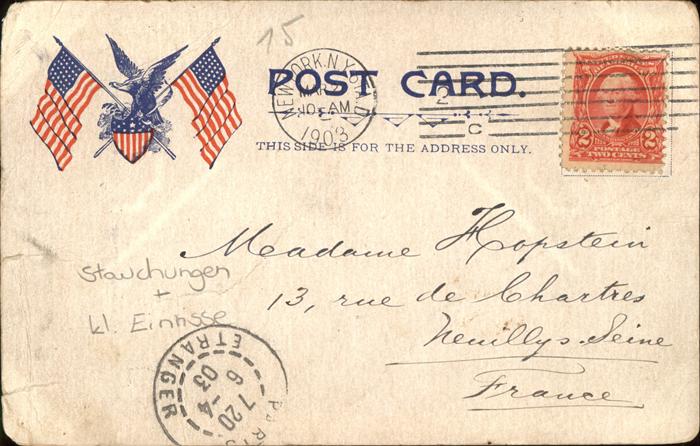 15
POST CARD.
NEW YORK, N.Y.
MAR
10-AM
1903
2
C
THIS SIDE IS FOR THE ADDRESS ONLY.
2 2
POSTAGE
TWO CENTS
Madame Hopstein
13, rue de Chartres
Neuilly s. Seine
France
Stauchungen
+
kl. Einrisse
PARIS
ETRANGER
7 20
6 -4
03